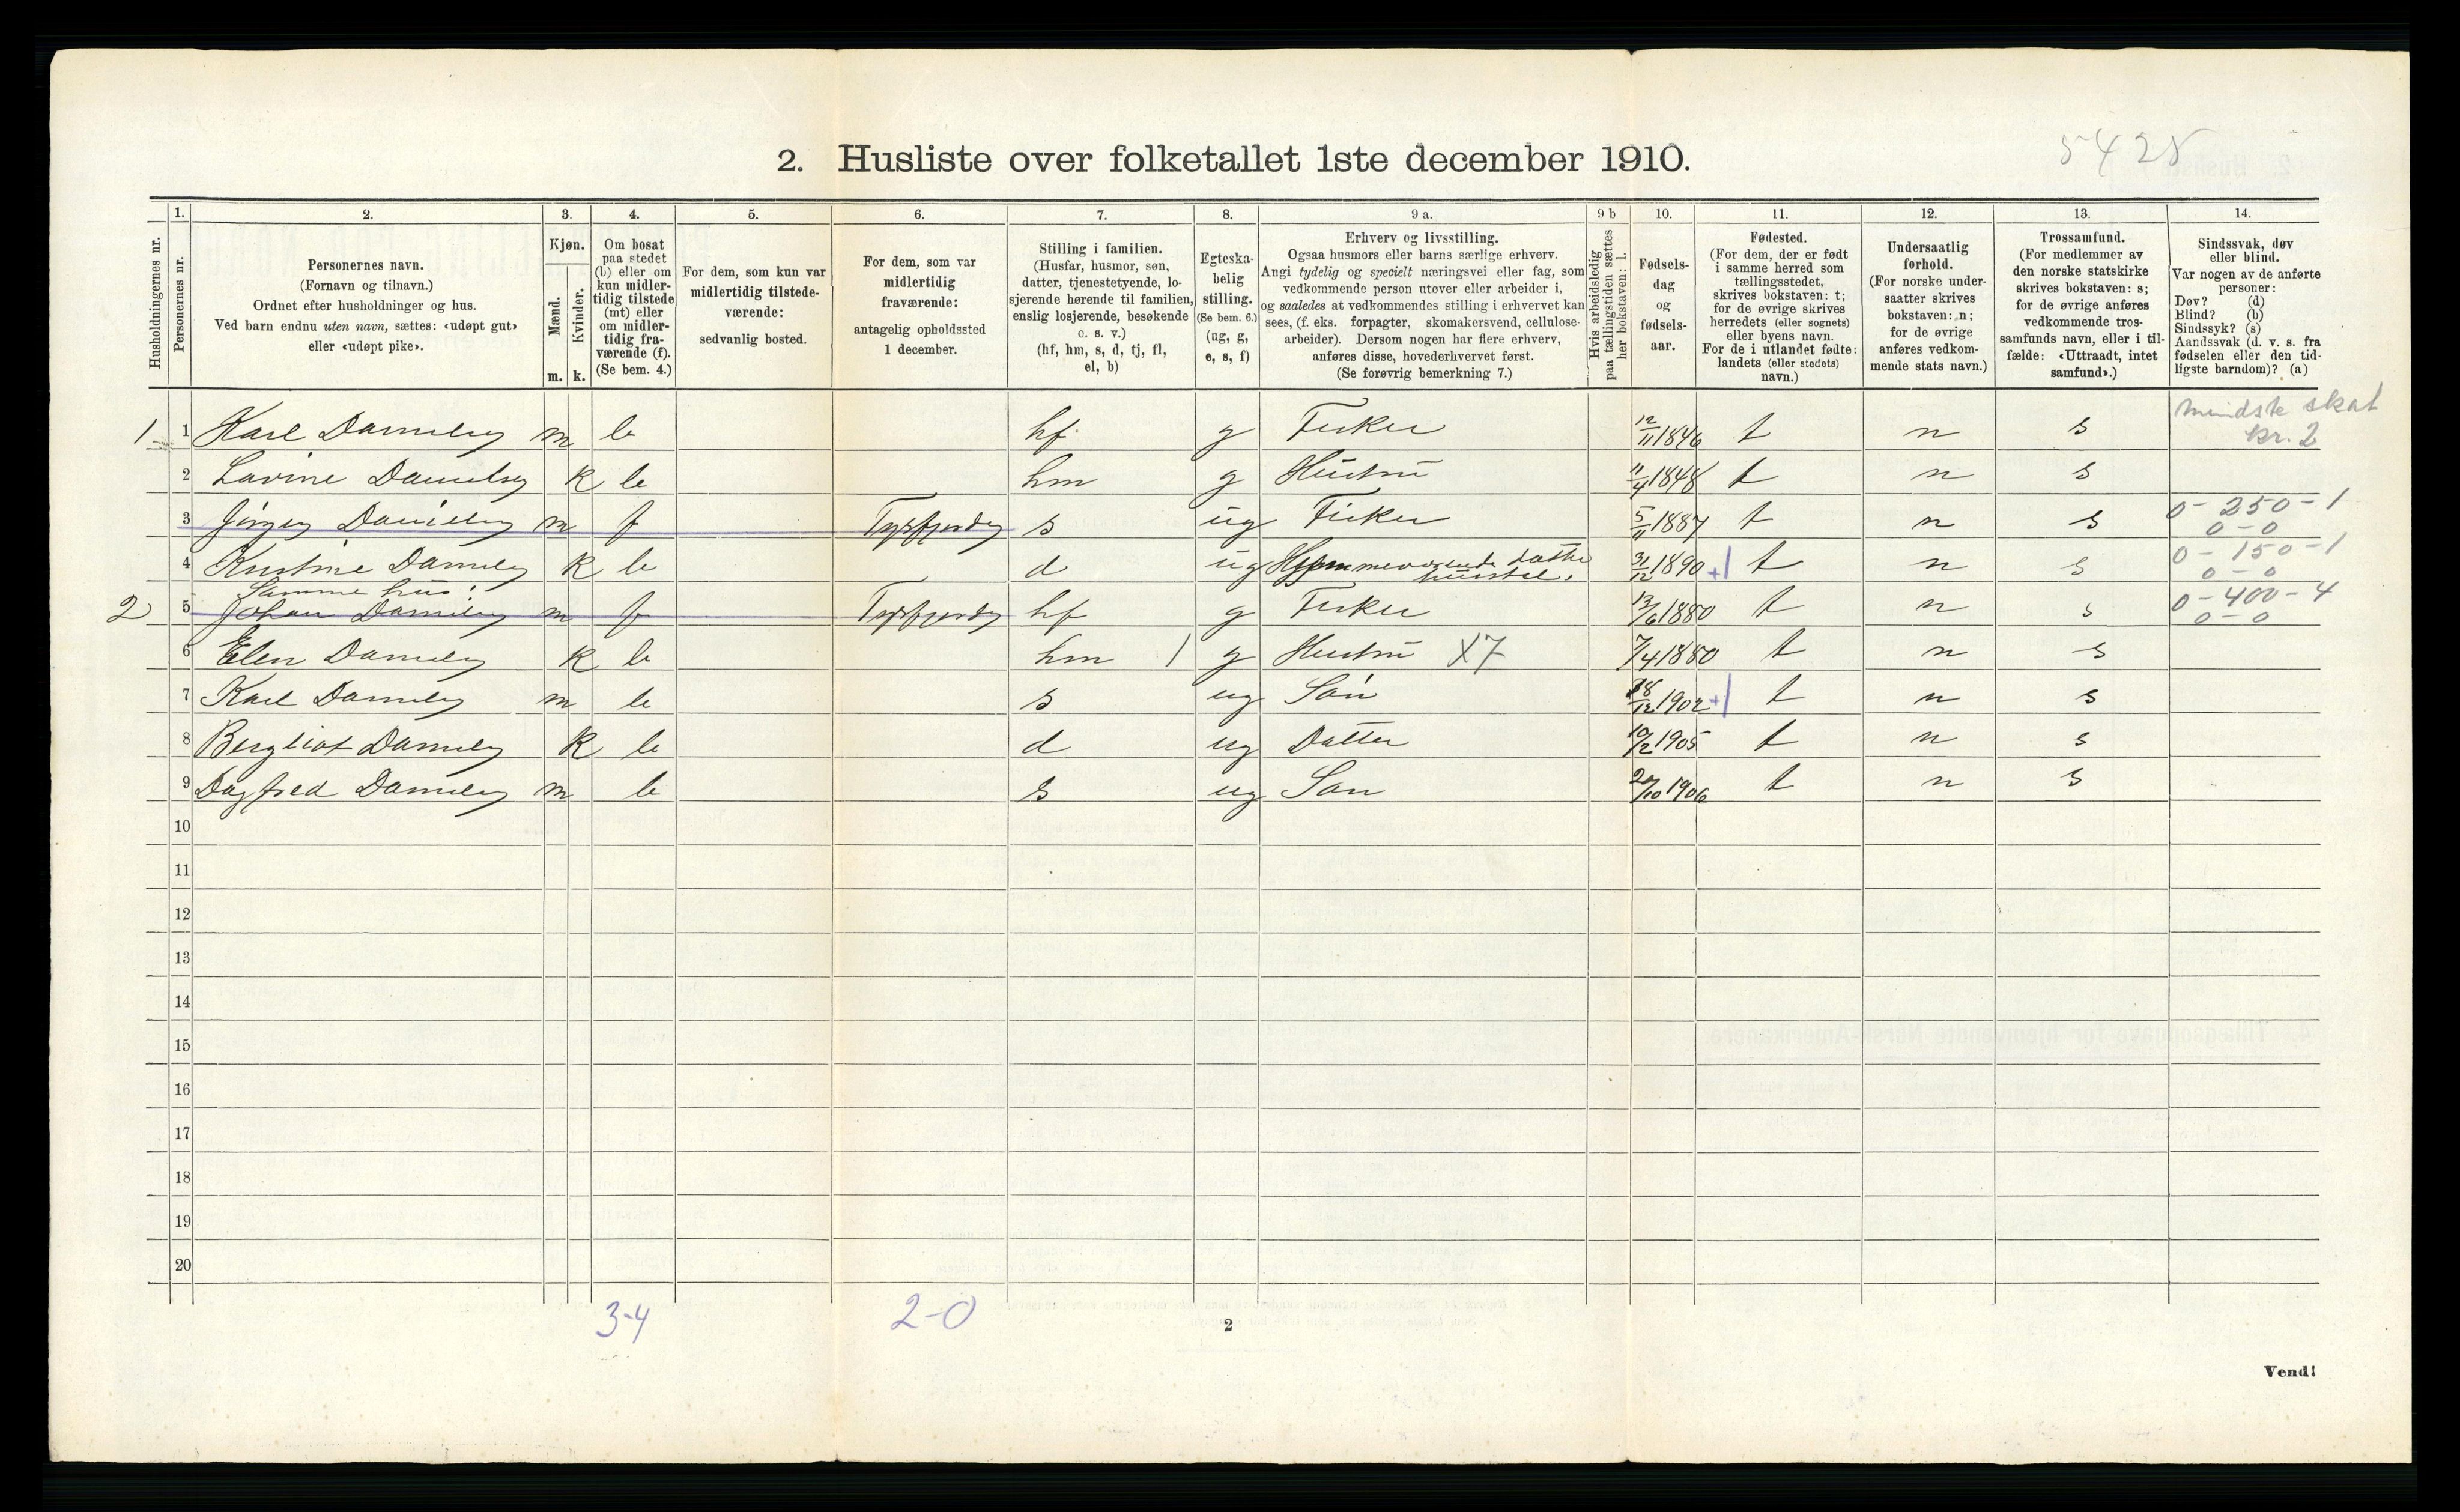 5428
2. Husliste over folketallet 1ste december 1910.
Husholdningernes nr.
1. Personernes nr.
2. Personernes navn.
(Fornavn og tilnavn.)
Ordnet efter husholdninger og hus.
Ved barn endnu uten navn, sættes: «udøpt gut»
eller «udøpt pike».
3. Kjøn.
Mænd. Kvinder.
m. k.
4. Om bosat
paa stedet
(b) eller om
kun midler-
tidig tilstede
(mt) eller
om midler-
tidig fra-
værende (f).
(Se bem. 4.)
5. For dem, som kun var
midlertidig tilstede-
værende:
sedvanlig bosted.
6. For dem, som var
midlertidig
fraværende:
antagelig opholdssted
1 december.
7. Stilling i familien.
(Husfar, husmor, søn,
datter, tjenestetyende, lo-
sjerende hørende til familien,
enslig losjerende, besøkende
o. s. v.)
(hf, hm, s, d, tj, fl,
el, b)
8. Egteska-
belig
stilling.
(Se bem. 6.)
(ug, g,
e, s, f)
9 a. Erhverv og livsstilling.
Ogsaa husmors eller barns særlige erhverv.
Angi tydelig og specielt næringsvei eller fag, som
vedkommende person utøver eller arbeider i,
og saaledes at vedkommendes stilling i erhvervet kan
sees, (f. eks. forpagter, skomakersvend, cellulose-
arbeider). Dersom nogen har flere erhverv,
anføres disse, hovederhvervet først.
(Se forøvrig bemerkning 7.)
9 b Hvis arbeidsledig
paa tællingstiden sættes
her bokstaven: l.
10. Fødsels-
dag
og
fødsels-
aar.
11. Fødested.
(For dem, der er født
i samme herred som
tællingsstedet,
skrives bokstaven: t;
for de øvrige skrives
herredets (eller sognets)
eller byens navn.
For de i utlandet fødte:
landets (eller stedets)
navn.)
12. Undersaatlig
forhold.
(For norske under-
saatter skrives
bokstaven: n;
for de øvrige
anføres vedkom-
mende stats navn.)
13. Trossamfund.
(For medlemmer av
den norske statskirke
skrives bokstaven: s;
for de øvrige anføres
vedkommende tros-
samfunds navn, eller i til-
fælde: «Uttraadt, intet
samfund».)
14. Sindssvak, døv
eller blind.
Var nogen av de anførte
personer:
Døv? (d)
Blind? (b)
Sindssyk? (s)
Aandssvak (d. v. s. fra
fødselen eller den tid-
ligste barndom)? (a)
1 1 Karl Danielsen m b hf g Fisker 12/11 1846 t n s mindste skat kr. 2
2 Lavine Danielsen k b hm g Hustru 11/4 1848 t n s
3 Jörgen Danielsen m f Tysfjorden s ug Fisker 5/11 1887 t n s 0-250-1 0-0
4 Kristine Danielsen k b d ug Hjemmeværende datter husstel. 31/12 1890 +1 t n s 0-150-1 0-0
Samme hus:
2 5 Johan Danielsen m f Tysfjorden hf g Fisker 13/6 1880 t n s 0-400-4 0-0
6 Elen Danielsen k b hm 1 g Hustru X7 7/4 1880 t n s
7 Karl Danielsen m b s ug Sön 18/12 1902 +1 t n s
8 Bergliot Danielsen k b d ug Datter 10/2 1905 t n s
9 Dagfred Danielsen m b s ug Sön 20/10 1906 t n s
10
11
12
13
14
15
16
17
18
19
20
3-4 2-0
2
Vend!